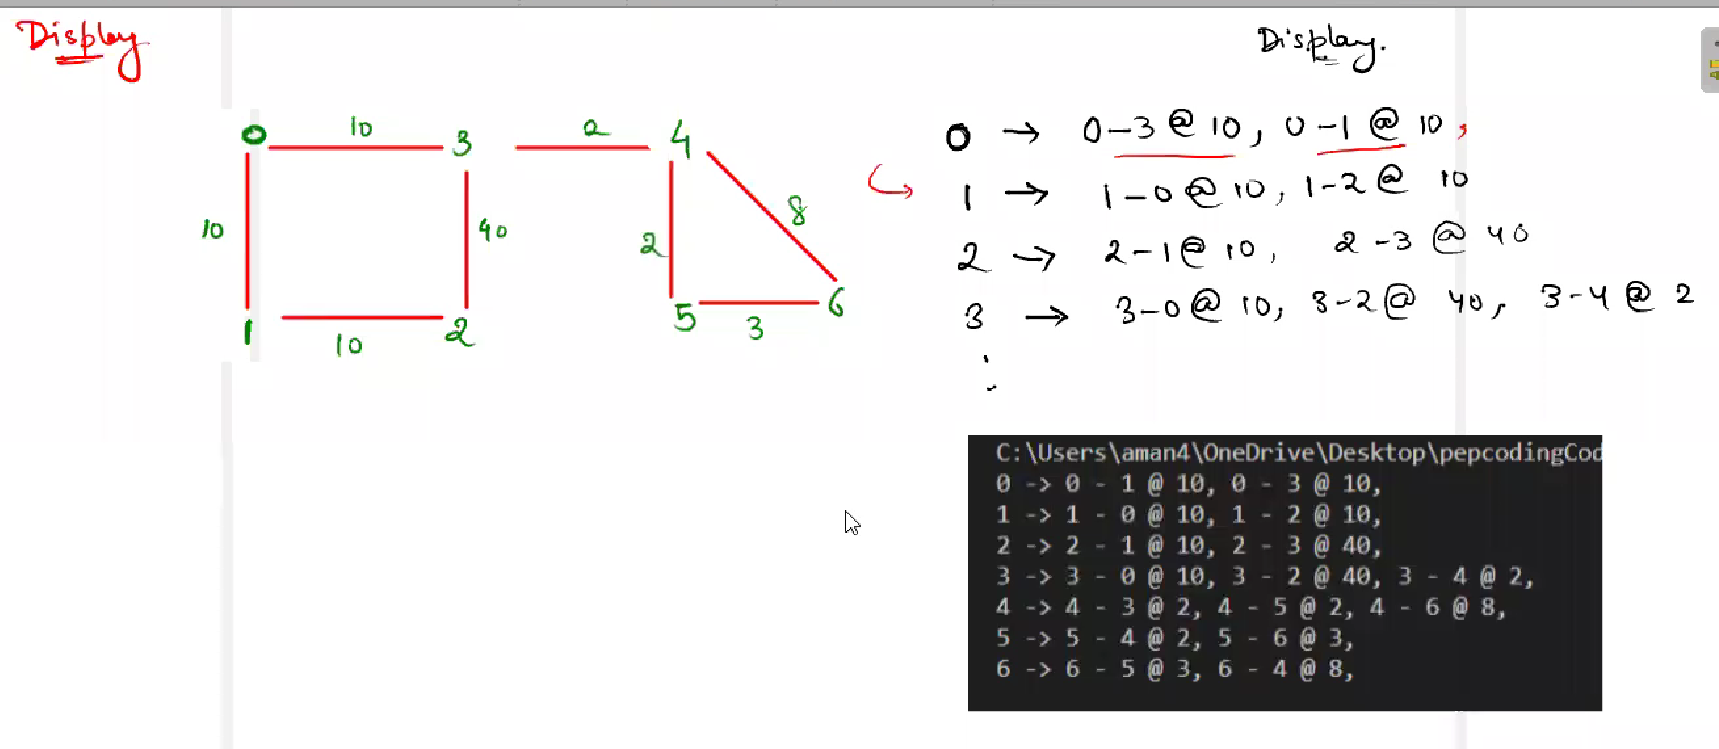 Display
Display.
10
2
0
3
4
10
40
2
8
1
10
2
5
3
6
0 → 0-3 @ 10, 0-1 @ 10,
1 → 1-0 @ 10, 1-2 @ 10
2 → 2-1 @ 10, 2-3 @ 40
3 → 3-0 @ 10, 3-2 @ 40, 3-4 @ 2
C:\Users\aman4\OneDrive\Desktop\pepcodingCod
0 -> 0 - 1 @ 10, 0 - 3 @ 10,
1 -> 1 - 0 @ 10, 1 - 2 @ 10,
2 -> 2 - 1 @ 10, 2 - 3 @ 40,
3 -> 3 - 0 @ 10, 3 - 2 @ 40, 3 - 4 @ 2,
4 -> 4 - 3 @ 2, 4 - 5 @ 2, 4 - 6 @ 8,
5 -> 5 - 4 @ 2, 5 - 6 @ 3,
6 -> 6 - 5 @ 3, 6 - 4 @ 8,